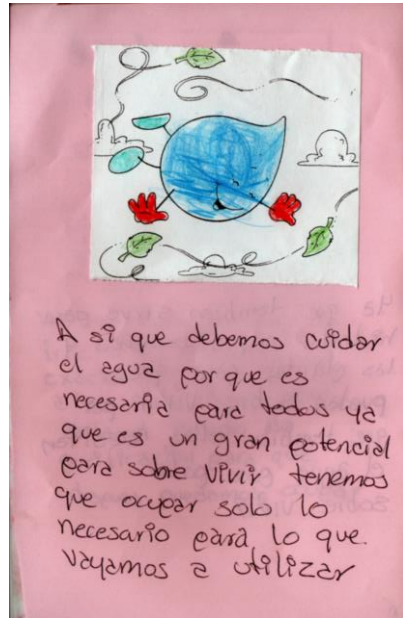 A si que debemos cuidar
el agua por que es
necesaria para todos ya
que es un gran potencial
para sobre vivir tenemos
que ocupar solo lo
necesario para lo que.
vayamos a utilizar